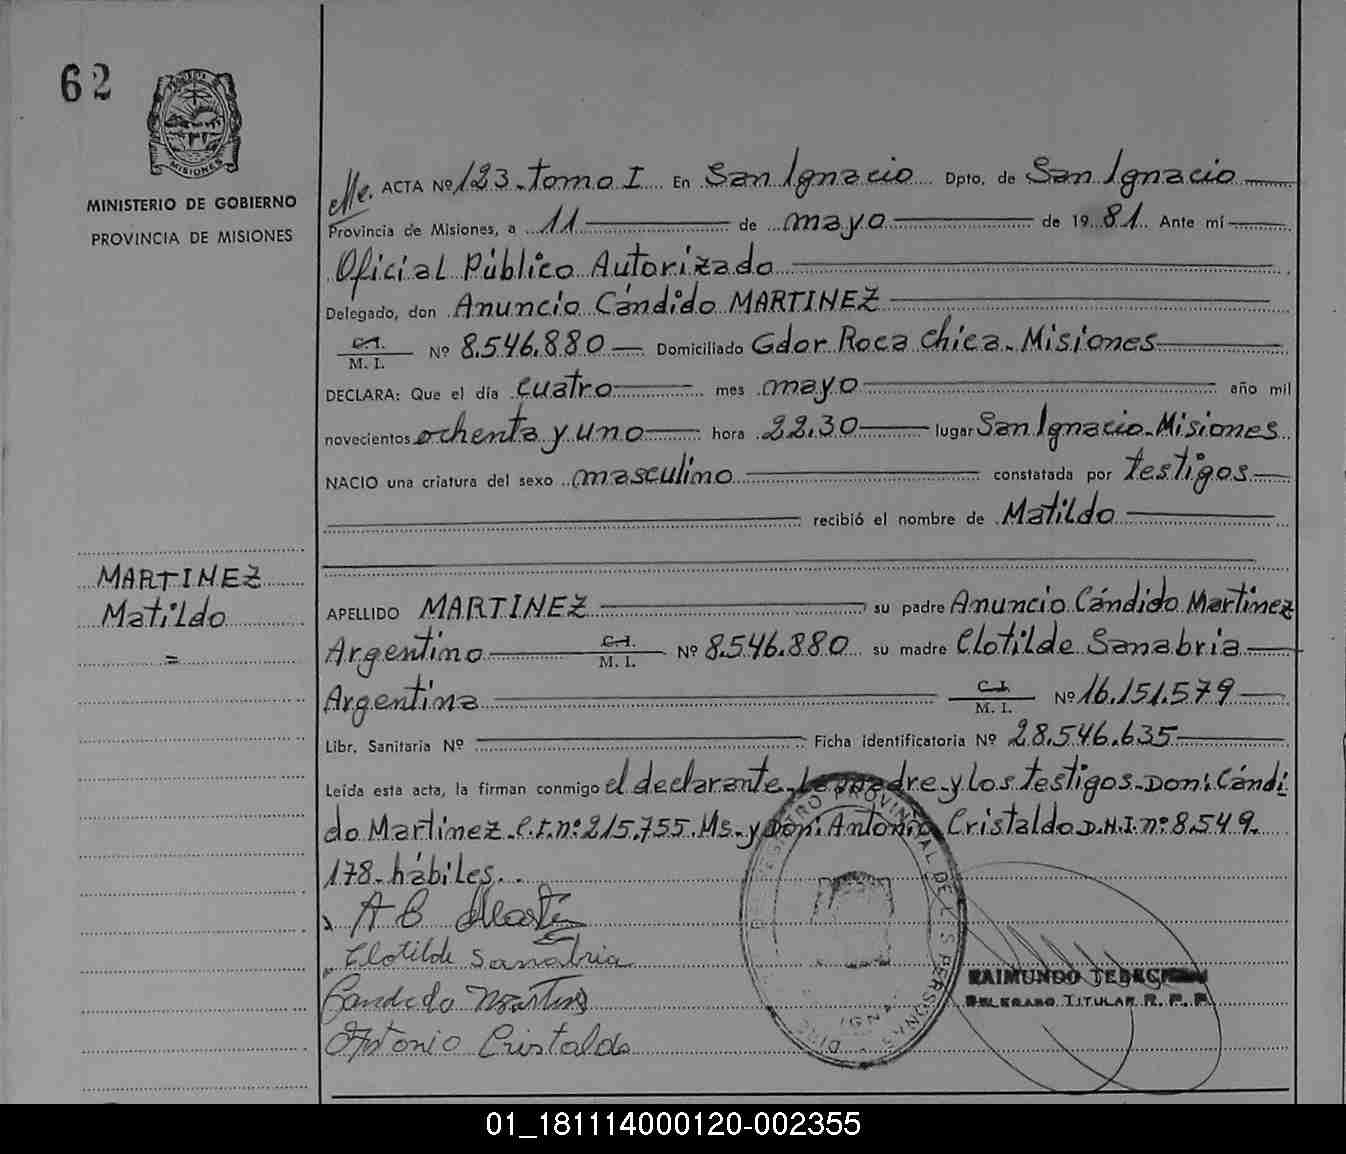 62
MISIONES
MINISTERIO DE GOBIERNO
PROVINCIA DE MISIONES
MARTINEZ
Matildo
=
ACTA Nº 123 - tomo I En San Ignacio Dpto. de San Ignacio
Provincia de Misiones, a 11 de mayo de 1981. Ante mí
Oficial Público Autorizado
Delegado, don Anuncio Cándido MARTINEZ
C.I. M. I. Nº 8.546.880 Domiciliado Gdor Roca Chica - Misiones
DECLARA: Que el día cuatro mes mayo año mil
novecientos ochenta y uno hora 22.30 lugar San Ignacio - Misiones
NACIO una criatura del sexo masculino constatada por testigos
recibió el nombre de Matildo
APELLIDO MARTINEZ su padre Anuncio Cándido Martinez
Argentino C.I. M. I. Nº 8.546.880 su madre Clotilde Sanabria
Argentina C.I. M. I. Nº 16.151.579
Libr. Sanitaria Nº Ficha identificatoria Nº 28.546.635
Leída esta acta, la firman conmigo el declarante - la madre y los testigos - Don: Cándi
do Martinez - C.I. nº 215.755 Ms. y Don: Antonio Cristaldo D.N.I. nº 8.549.
178 - hábiles.
A C Martin
Clotilde Sanabria
Candido Martinez
Antonio Cristaldo
REGISTRO PROVINCIAL DE LAS PERSONAS
RAIMUNDO
DELEGADO TITULAR R. P. P.
01_181114000120-002355